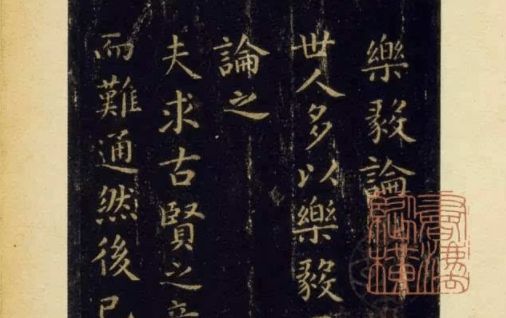 樂毅論
世人多以樂毅
論之
夫求古賢之意
而難通然後已